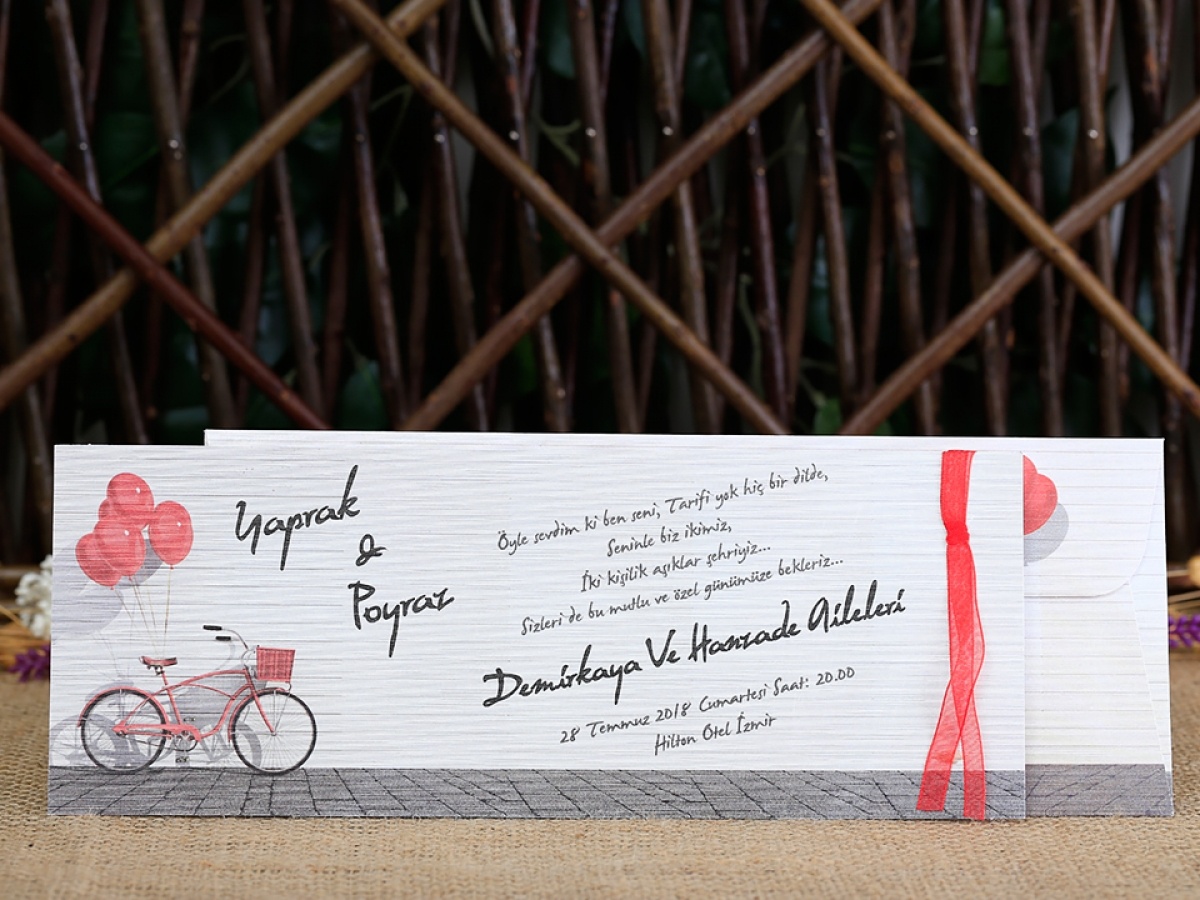 Yaprak
&
Poyraz
Öyle sevdim ki ben seni, Tarifi yok hiç bir dilde,
Seninle biz ikimiz,
İki kişilik aşıklar şehriyiz...
Sizleri de bu mutlu ve özel günümüze bekleriz...
Demirkaya Ve Hanzade Aileleri
28 Temmuz 2018 Cumartesi Saat: 20.00
Hilton Otel İzmir